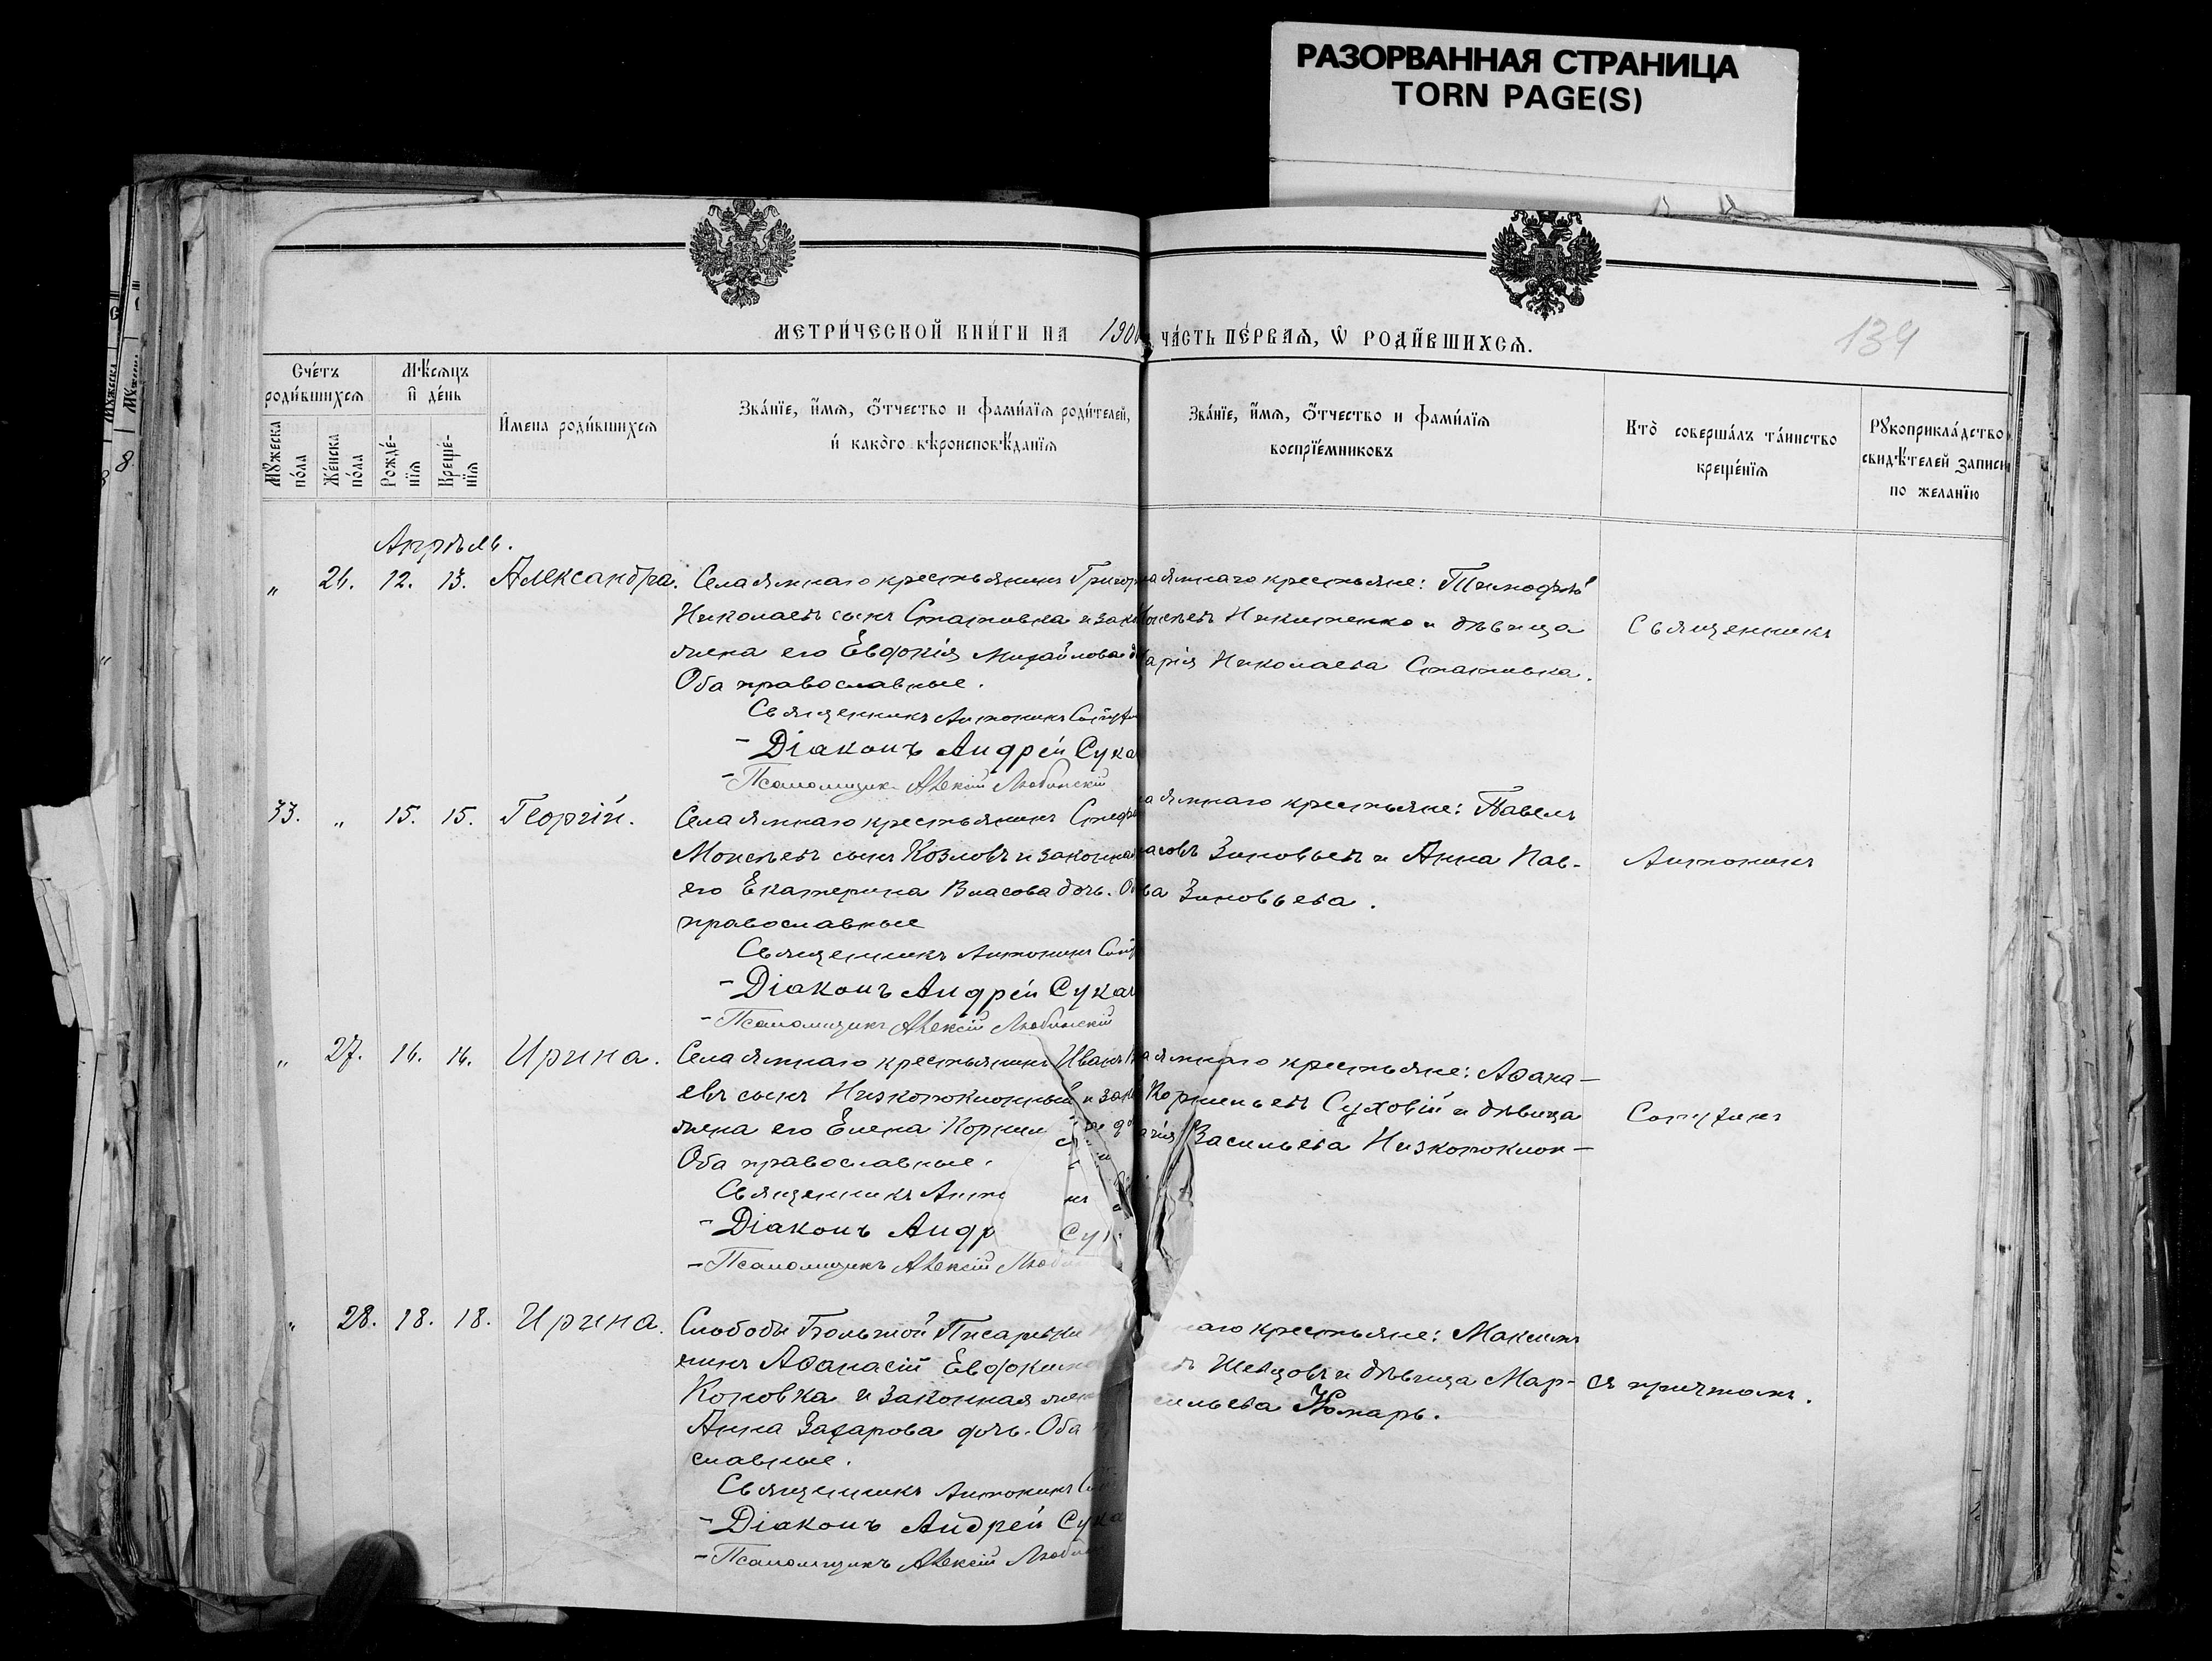 РАЗОРВАННАЯ СТРАНИЦА
TORN PAGE(S)
МЕТРИ́ЧЕСКОЙ КНИ́ГИ НА 190
ЧА́СТЬ ПЕ́РВАѦ, Ѡ РОДИ́ВШИХСѦ.
134
Сче́тъ
роди́вшихсѧ
Мѣ́сѧцъ
и҆ де́нь
Мꙋ́жеска
по́ла
Же́нска
по́ла
Рожде́-
нїѧ
Креще́-
нїѧ
И҆мена роди́вшихсѧ
Зва́нїе, и҆́мѧ, ѻ҆́тчество и фами́лїѧ роди́телей,
и҆ како́гѡ вѣроисповѣ́данїѧ
Зва́нїе, и҆́мѧ, ѻ҆́тчество и фами́лїѧ
воспрїе́мниковъ
Кто̀ соверша́лъ та́инство
креще́нїѧ
Рꙋкоприкла́дство
свидѣ́телей записи
по жела́нїю
Апрѣль.
" 26. 12. 13. Александра. Села Ямнаго крестьянинъ Григор
Николаевъ сынъ Стативка и зак
жена его Евфокія Михайлова
Оба православные.
Священникъ Антонинъ
- Діаконъ Андрей Сука
- Псаломщикъ Алексій Любинскій
Ямнаго крестьяне: Тимофѣй
Никитенко и дѣвица
Марія Николаева Стативка.
Священникъ
33. " 15. 15. Георгій. Села Ямнаго крестьянинъ Стеф
Моисеевъ сынъ Козловъ и законная
его Екатерина Власова дочь. О
православные
Священникъ Антонинъ
- Діаконъ Андрей Сука
- Псаломщикъ Алексій Любинскій
Ямнаго крестьяне: Павелъ
Зиновьевъ и Анна Пав-
ва Зиновьева.
Антонинъ
" 27. 16. 16. Ирина. Села Ямнаго крестьянинъ Иванъ
евъ сынъ Низкопоклонный и зак
жена его Елена Корнил
Оба православные.
Священникъ Анто
- Діаконъ Андр Су
- Псаломщикъ Алексій Люб
Ямнаго крестьяне: Аѳана-
Корнильевъ Суховій и дѣвица
Васильева Низкопоклон-
" 28. 18. 18. Ирина. Слободы Большой Писаревки
нинъ Аѳанасій Евфоким
Коновка и законная жен
Анна Захарова дочь. Оба
славные.
Священникъ Антонинъ
- Діаконъ Андрей Сука
- Псаломщикъ Алексій Люби
наго крестьяне: Максимъ
Шевцовъ и дѣвица Мар-
сильева Комарь.
съ причтомъ.